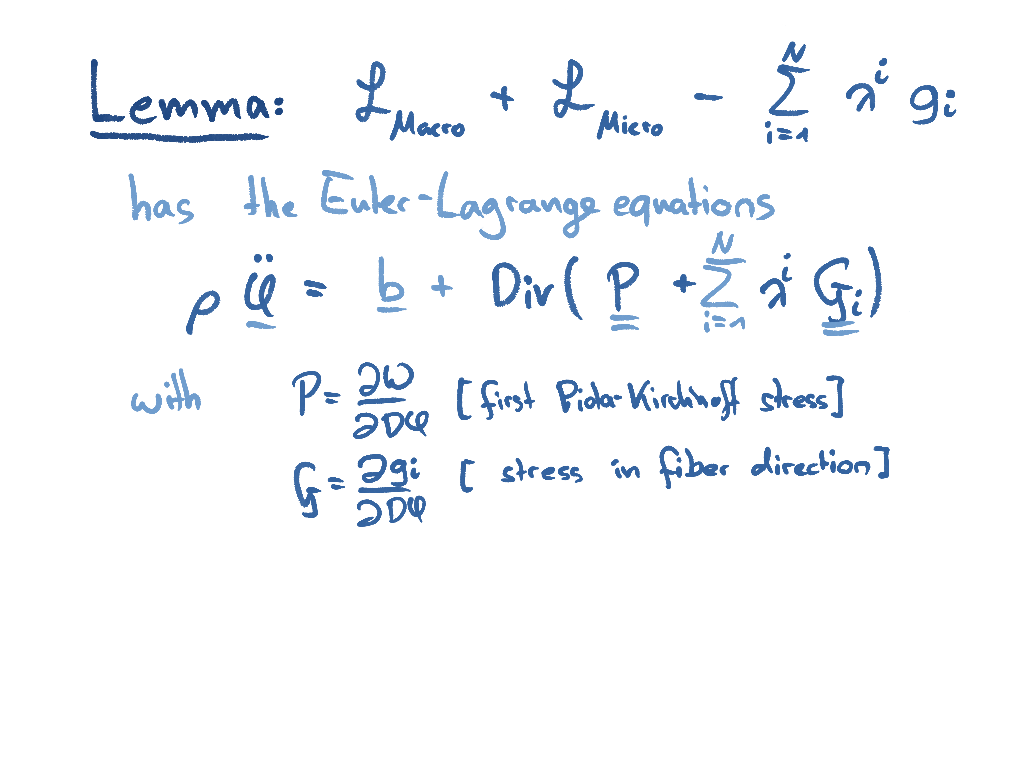 Lemma: ℒ_Macro + ℒ_Micro - ∑_{i=1}^{N} λ^i g_i
has the Euler-Lagrange equations
ρ φ̈ = b + Div( P + ∑_{i=1}^{N} λ^i G_i )
with P = ∂W/∂Dφ [first Piola-Kirchhoff stress]
G = ∂g_i/∂Dφ [stress in fiber direction]